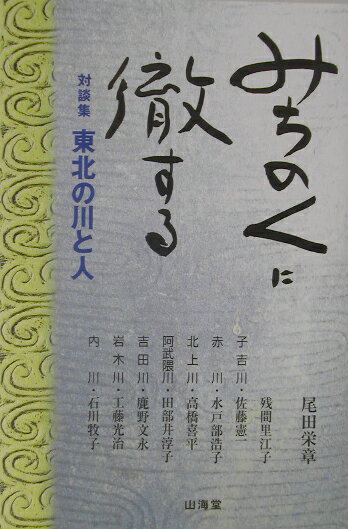 みちのくに
徹する
対談集 東北の川と人
尾田栄章
残間里江子
子吉川・佐藤憲一
赤川・水戸部浩子
北上川・高橋喜平
阿武隈川・田部井淳子
吉田川・鹿野文永
岩木川・工藤光治
内川・石川牧子
山海堂